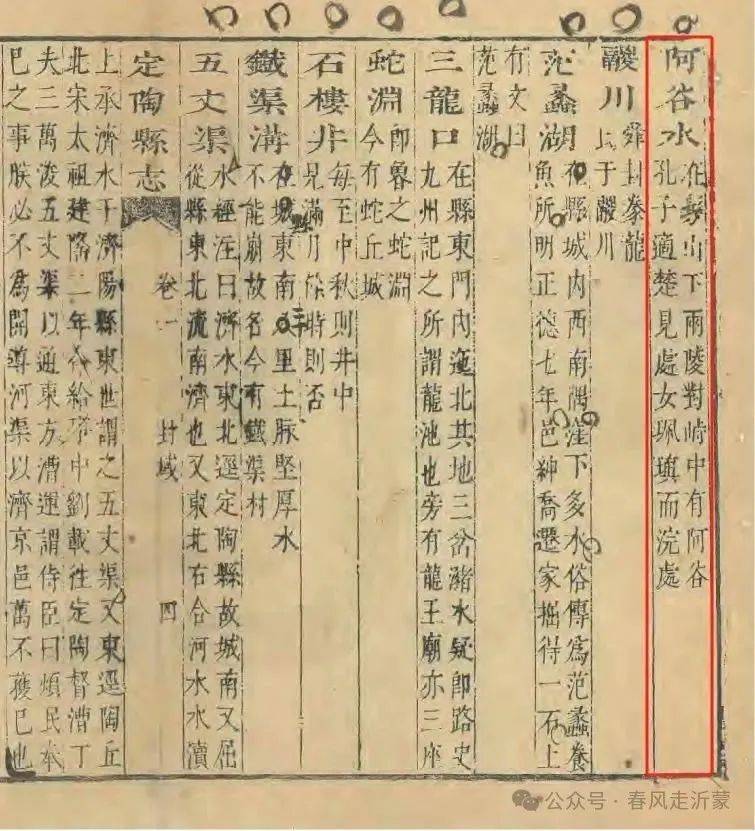 阿谷水在髣山下兩陵對峙中有阿谷
孔子適楚見處女珮瑱而浣處
鬷川舜封豢龍
氏于鬷川
范蠡湖在縣城内西南隅窪下多水俗傳爲范蠡養
魚所明正德七年邑紳喬遷家掘得一石上
有文曰
范蠡湖
三龍口在縣東門内迤北其地三岔瀦水疑卽路史
九州記之所謂龍池也旁有龍王廟亦三座
蛇淵卽魯之蛇淵
今有蛇丘城
石樓井每至中秋則井中
見滿月餘時則否
鐵渠溝在城東南里土脉堅厚水
不能崩故名今有鐵渠村
五丈渠水經注曰濟水東北逕定陶縣故城南又屈
從縣東北流南濟也又東北右合河水水瀆
定陶縣志 卷一 封域 四
上承濟水于濟陽縣東世謂之五丈渠又東逕陶丘
北宋太祖建隆二年命給事中劉載往定陶督漕丁
夫三萬浚五丈渠以通東方漕運謂侍臣曰煩民奉
巳之事朕必不爲開導河渠以濟京邑萬不獲巳也
公众号·春风走沂蒙